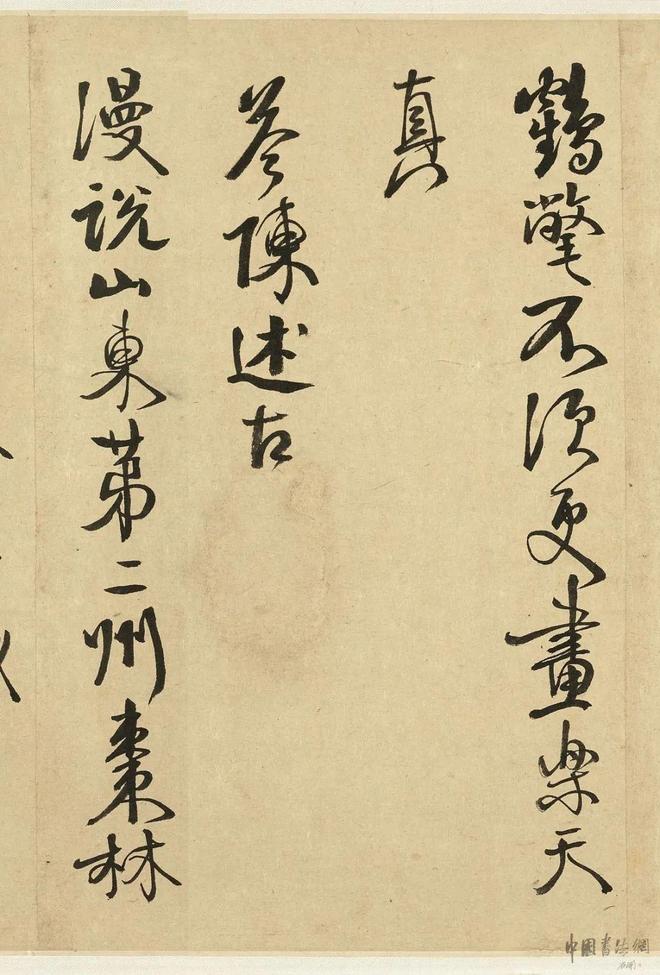 鶴氅不須更畫樂天
真
答陳述古
漫說山東第二州棗林
中国書法網